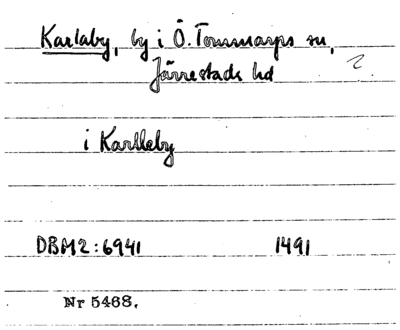 Karlaby, by i Ö. Tommarps sn,
Järrestads hd
i Karlleby
DBM2:6941 1491
Nr 5468.